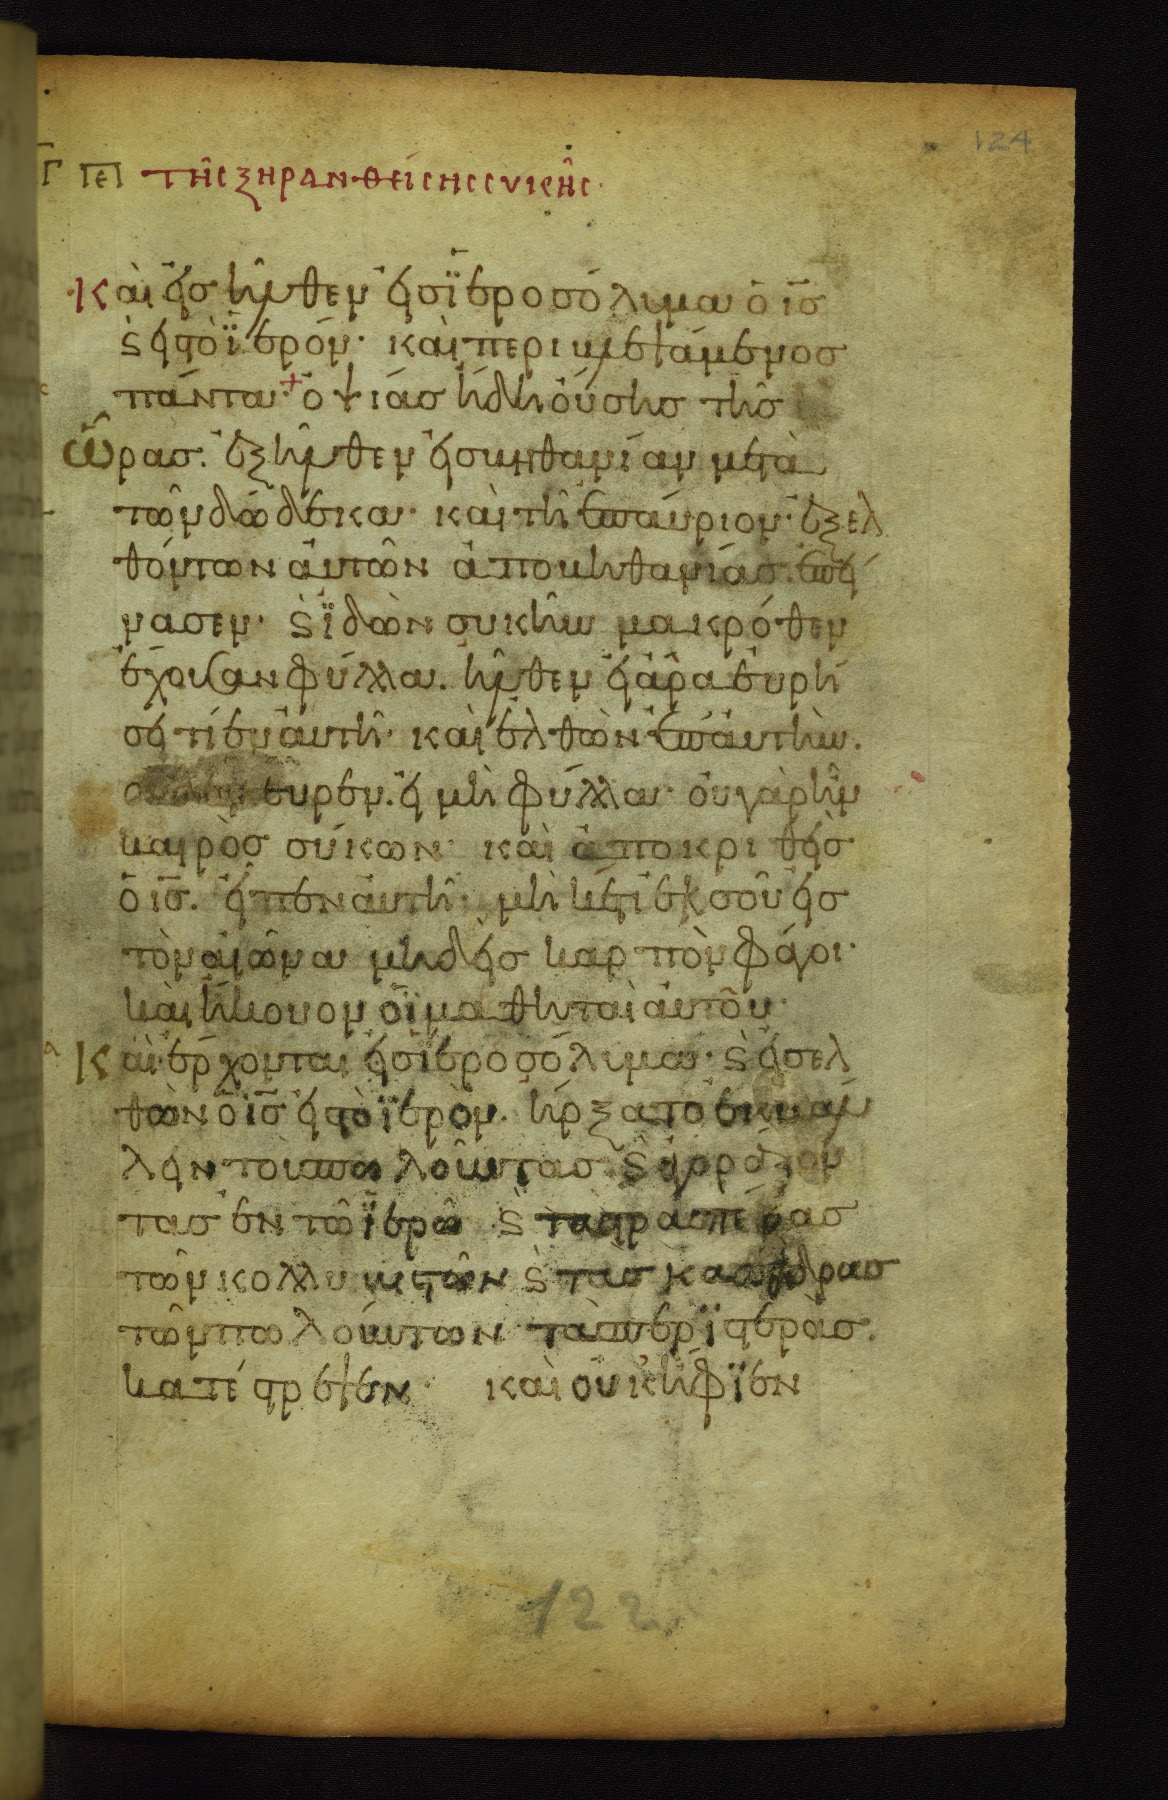 124
Γ ΠΕ ΤΗ͂C ΞΗΡΑΝΘΕΊCΗC CΥΚΗ͂C
Καὶ εἰσῆλθεν εἰς ἱεροσόλυμα ὁ ις
ϛ εἰς τὸ ἱερόν· καὶ περιβλεψάμενος
πάντα· + ὀψίας ἤδη οὔσης τῆς
ὥρας. ἐξῆλθεν εἰς βηθανίαν μετὰ
τῶν δώδεκα· καὶ τῇ ἐπαύριον· ἐξελ
θόντων αὐτῶν ἀπο βηθανίας. ἐπεί
νασεν· ϛ ἰδὼν συκῆν μακρόθεν
ἔχουσαν φύλλα. ἦλθεν εἰ ἄρα εὑρή
σει τί ἐν αὐτῇ· καὶ ἐλθὼν ἐπ' αὐτὴν.
οὐδὲν εὗρεν. εἰ μὴ φύλλα· οὐ γὰρ ἦν
καιρὸς σύκων· καὶ ἀποκριθεὶς
ὁ ις. εἶπεν αὐτῇ· μὴ κέτι ἐκ σοῦ εἰς
τὸν αἰῶνα μηδεὶς καρπὸν φάγοι·
καὶ ἤκουον οἱ μαθηταὶ αὐτοῦ·
Καὶ ἔρχονται εἰς ἱεροσόλυμα· ϛ εἰσελ
θὼν ὁ ις εἰς τὸ ἱερὸν. ἤρξατο ἐκβάλ
λειν τοὺς πωλοῦντας ϛ ἀγοράζον
τας ἐν τῷ ἱερῷ ϛ τὰς τραπέζας
τῶν κολλυβιστῶν ϛ τὰς καθέδρας
τῶν πωλούντων τὰς περιστερὰς.
κατέστρεψεν· καὶ οὐκ ἤφιεν
122